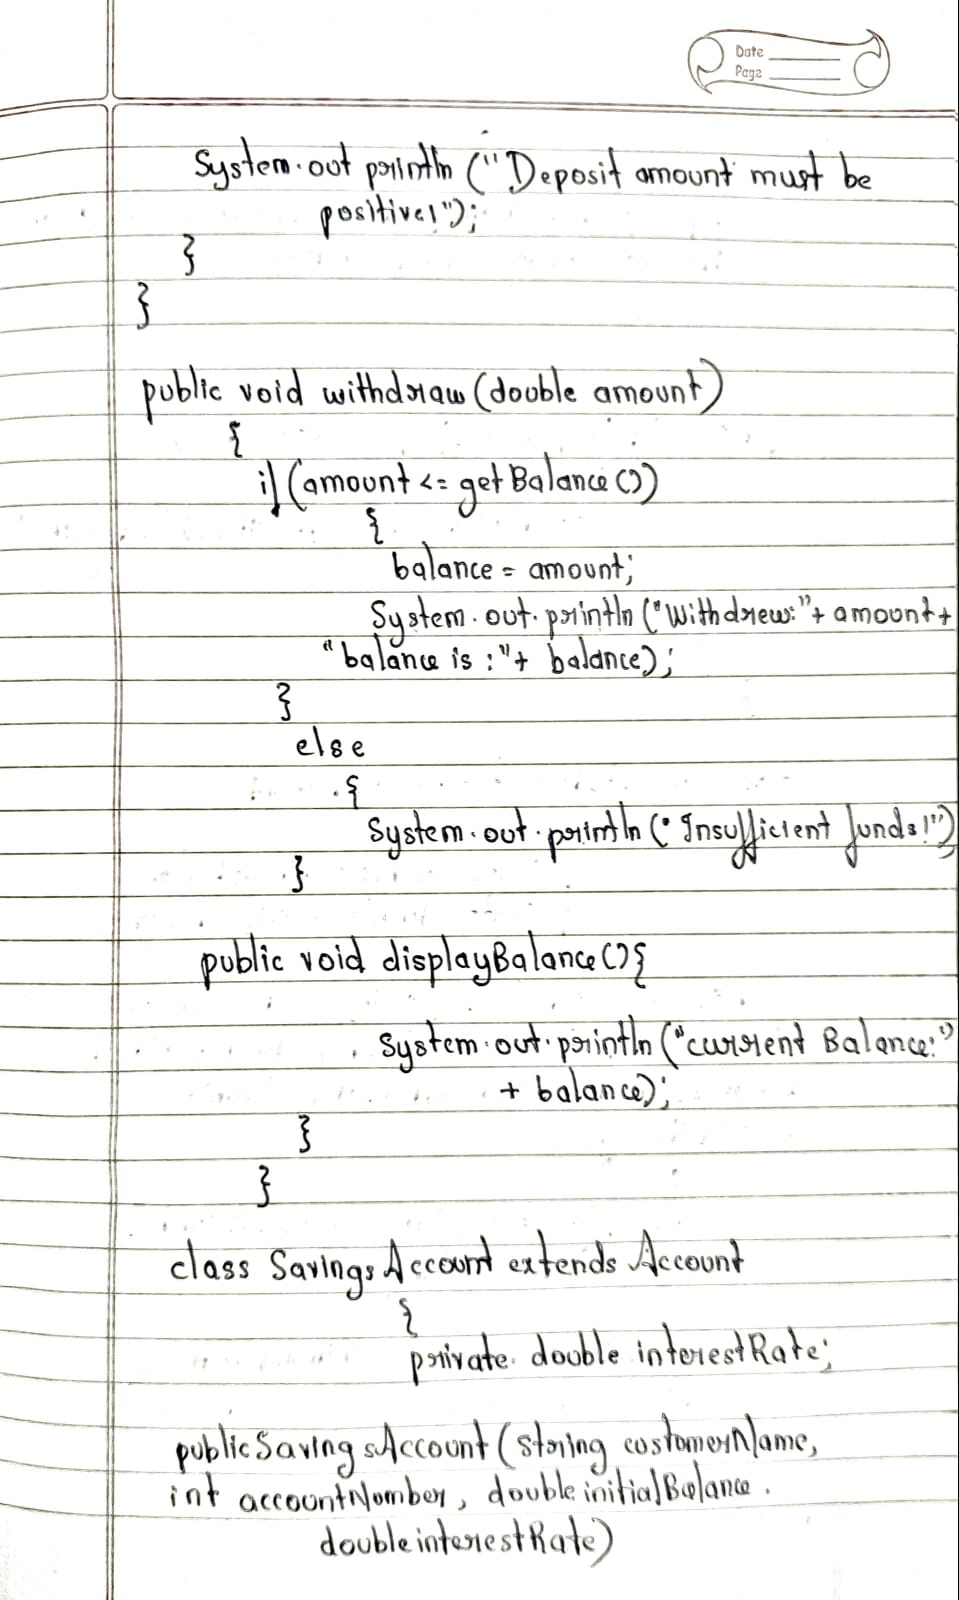 Date
Page
System.out println ("Deposit amount must be
positive!");
}
}
public void withdraw (double amount)
{
if (amount <= getBalance ())
{
balance = amount;
System.out.println ("Withdrew:"+ amount+
"balance is :"+ balance);
}
else
{
System.out.println ("Insufficient funds!")
}
public void displayBalance () {
System.out.println ("current Balance:"
+ balance);
}
}
class SavingsAccount extends Account
{
private double interestRate;
public SavingsAccount (string customerName,
int accountNumber, double initialBalance.
double interestRate)